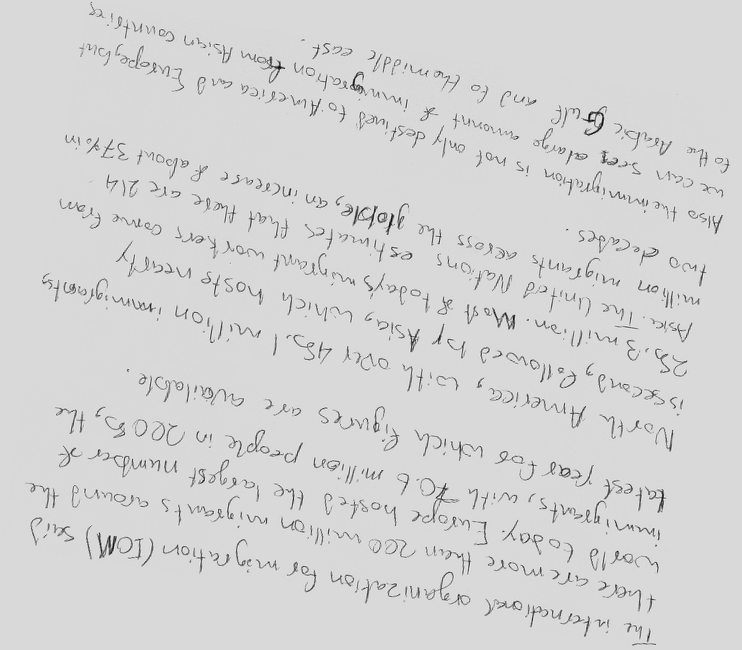 The international organization for migration (IOM) said
there are more then 200 million migrants around the
world today. Europe hosted the largest number of
immigrants, with 70.6 million people in 2005, the
latest year for which figures are available.
North America, with over 45.1 million immigrants,
is second, followed by Asia, which hosts nearly
25.3 million. Most of today's migrant workers come from
Asia. The United Nations estimates that there are 214
million migrants across the globle, an increase of about 37% in
two decades.
Also the immigration is not only destined to America and Europe, but
we can see a large amount of immigration from Asian countries
to the Arabic Gulf and to the middle east.